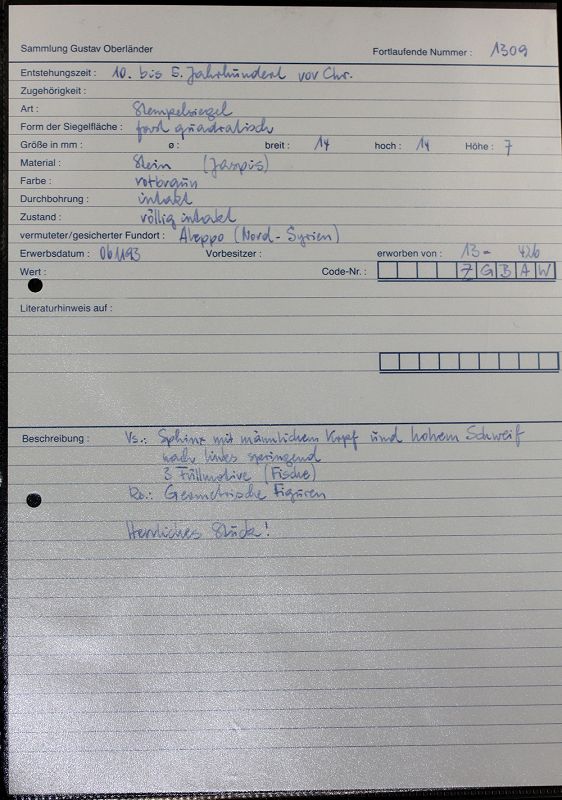 Sammlung Gustav Oberländer
Fortlaufende Nummer : 1309
Entstehungszeit : 10. bis 5. Jahrhundert vor Chr.
Zugehörigkeit :
Art : Stempelsiegel
Form der Siegelfläche : fast quadratisch
Größe in mm : ø : breit : 14 hoch : 14 Höhe : 7
Material : Stein (Jaspis)
Farbe : rotbraun
Durchbohrung : intakt
Zustand : völlig intakt
vermuteter/gesicherter Fundort : Aleppo (Nord-Syrien)
Erwerbsdatum : 061193 Vorbesitzer : erworben von : 13- 426
Wert : Code-Nr. : 7 G B A W
Literaturhinweis auf :
Beschreibung : Vs.: Sphinx mit männlichem Kopf und hohem Schweif
nach links springend
3 Füllmotive (Fische)
Rs.: Geometrische Figuren
Herrliches Stück!